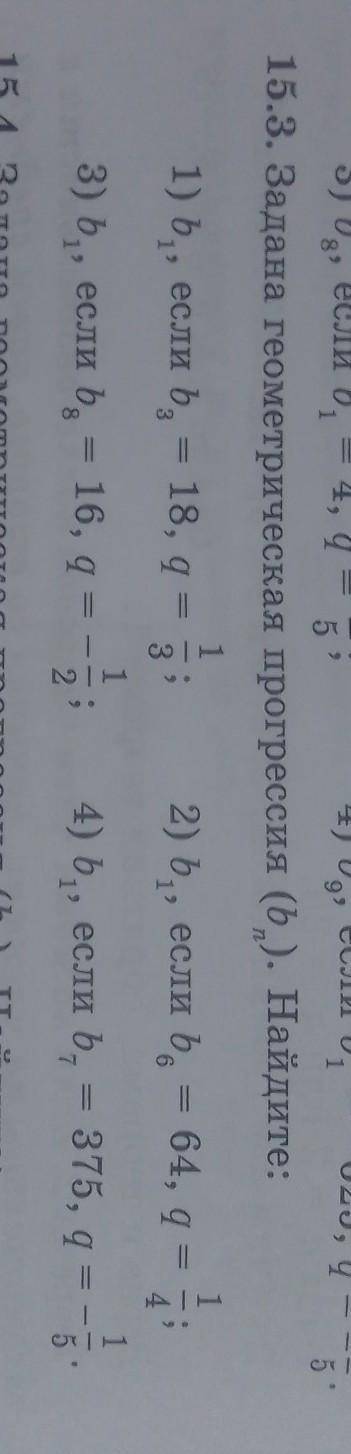 3) b₈, если b₁ = 4, q = 5;
15.3. Задана геометрическая прогрессия (bₙ). Найдите:
1) b₁, если b₃ = 18, q = 1/3; 2) b₁, если b₆ = 64, q = 1/4;
3) b₁, если b₈ = 16, q = −1/2; 4) b₁, если b₇ = 375, q = −1/5.
15.4 Задана геометрическая прогрессия